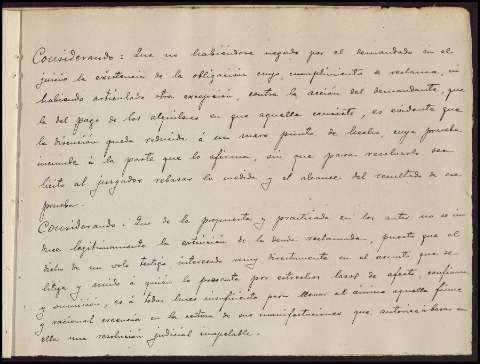 Considerando: Que no habiéndose negado por el demandado en el
juicio la existencia de la obligación cuyo cumplimiento se reclama, ni
habiendo articulado otra excepción, contra la acción del demandante, que
la del pago de los alquileres en que aquella consiste, es evidente que
la discusión queda reducida á un mero punto de hecho, cuya prueba
incumbe á la parte que lo afirma, sin que para resolverlo sea
lícito al juzgador rebasar la medida y el alcance del resultado de esa
prueba.
Considerando: Que de la propuesta y practicada en los autos no se in-
duce legítimamente la extinción de la deuda reclamada, puesto que el
dicho de un solo testigo, interesado muy directamente en el asunto que se
litiga y unido á quien lo presenta por estrechos lazos de afecto, confianza
y sumisión, es á todas luces insuficiente para llevar al ánimo aquella firme
y racional creencia en la certeza de sus manifestaciones que, autorizáran en
ella una resolución judicial inapelable.